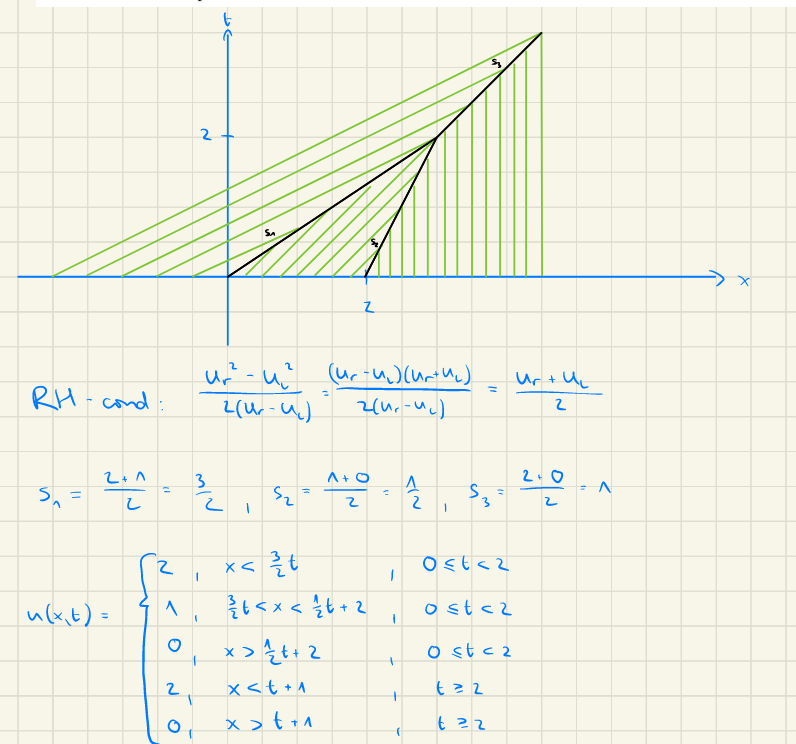 t
s₃
2
s₁
s₂
x
2
RH-cond: (u_r² - u_L²)/(2(u_r - u_L)) = ((u_r - u_L)(u_r + u_L))/(2(u_r - u_L)) = (u_r + u_L)/2
s₁ = (2+1)/2 = 3/2 , s₂ = (1+0)/2 = 1/2 , s₃ = (2+0)/2 = 1
2 , x < 3/2 t , 0 ≤ t < 2
u(x,t) = { 1 , 3/2 t < x < 1/2 t + 2 , 0 ≤ t < 2
0 , x > 1/2 t + 2 , 0 ≤ t < 2
2 , x < t + 1 , t ≥ 2
0 , x > t + 1 , t ≥ 2